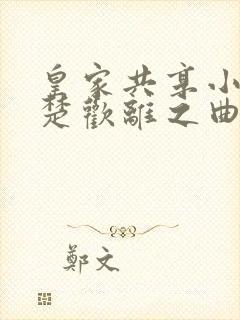 皇家共享小
楚歡離之曲
鄭文